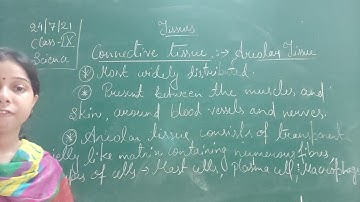 Tissues
24/7/21
Class-IX
Science
Connective tissue :→ Areolar Tissue
* Most widely distributed.
* Present between the muscles and
skin, around blood vessels and nerves.
* Areolar tissue consists of transparent
jelly like matrix containing numerous fibres
of cells → Mast cells, plasma cell, Macrophage